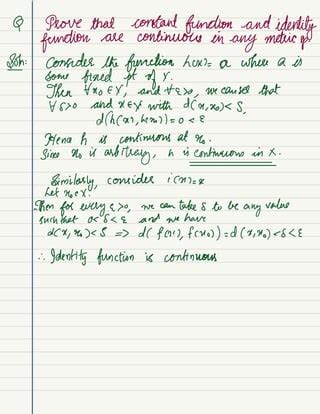 Q Prove that constant function and identity
function are continuous in any metric sp
Soln: Consider the function h(x) = a where a is
some fixed pt of Y.
Then ∀ x₀ ∈ X, and ∀ ε>0, we can see that
∀ δ>0 and x∈X with d(x, x₀) < δ,
d(h(x), h(x₀)) = 0 < ε
Hence h is continuous at x₀.
Since x₀ is arbitrary, h is continuous in X.
Similarly, consider i(x) = x
Let x₀ ∈ X.
Then for every ε>0, we can take δ to be any value
such that 0<δ<ε and we have
d(x, x₀) < δ => d( f(x), f(x₀)) = d(x, x₀) < δ < ε
∴ Identity function is continuous